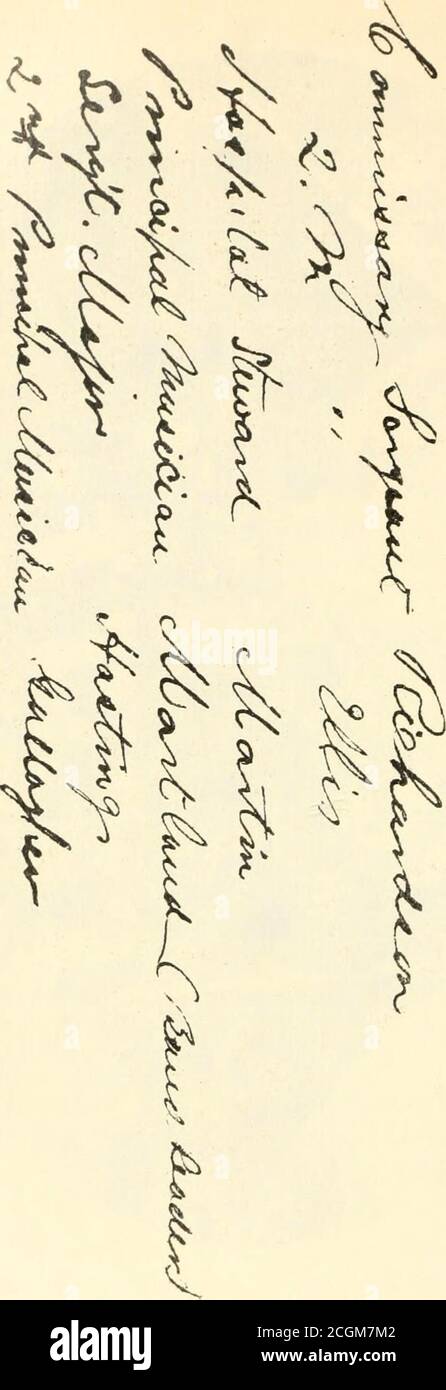 Commissary Sergeant Richardson
Q. M. " Ellis
Hospital Steward Martin
Principal Musician Martland (Band Leader)
Sergt. Major Hastings
2nd Principal Musician Gallagher
a
alamy
Image ID: 2CGM7M2
www.alamy.com